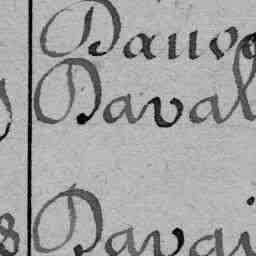 Dauvo
Daval
8 Davai